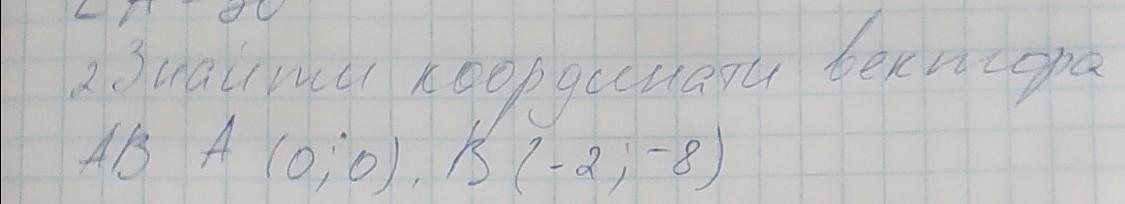 2 Знайти координати вектора
AB A (0; 0), B (-2; -8)